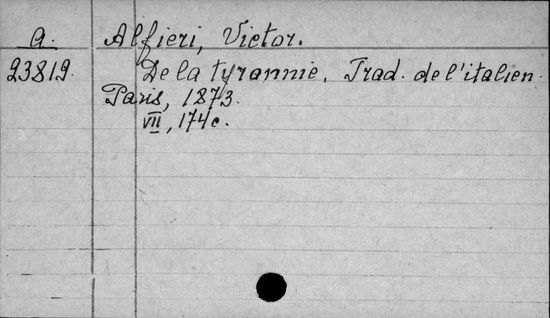 A. Alfieri, Victor.
23819. De la tyrannie. Trad. de l'italien.
Paris, 1873.
VII, 174c.